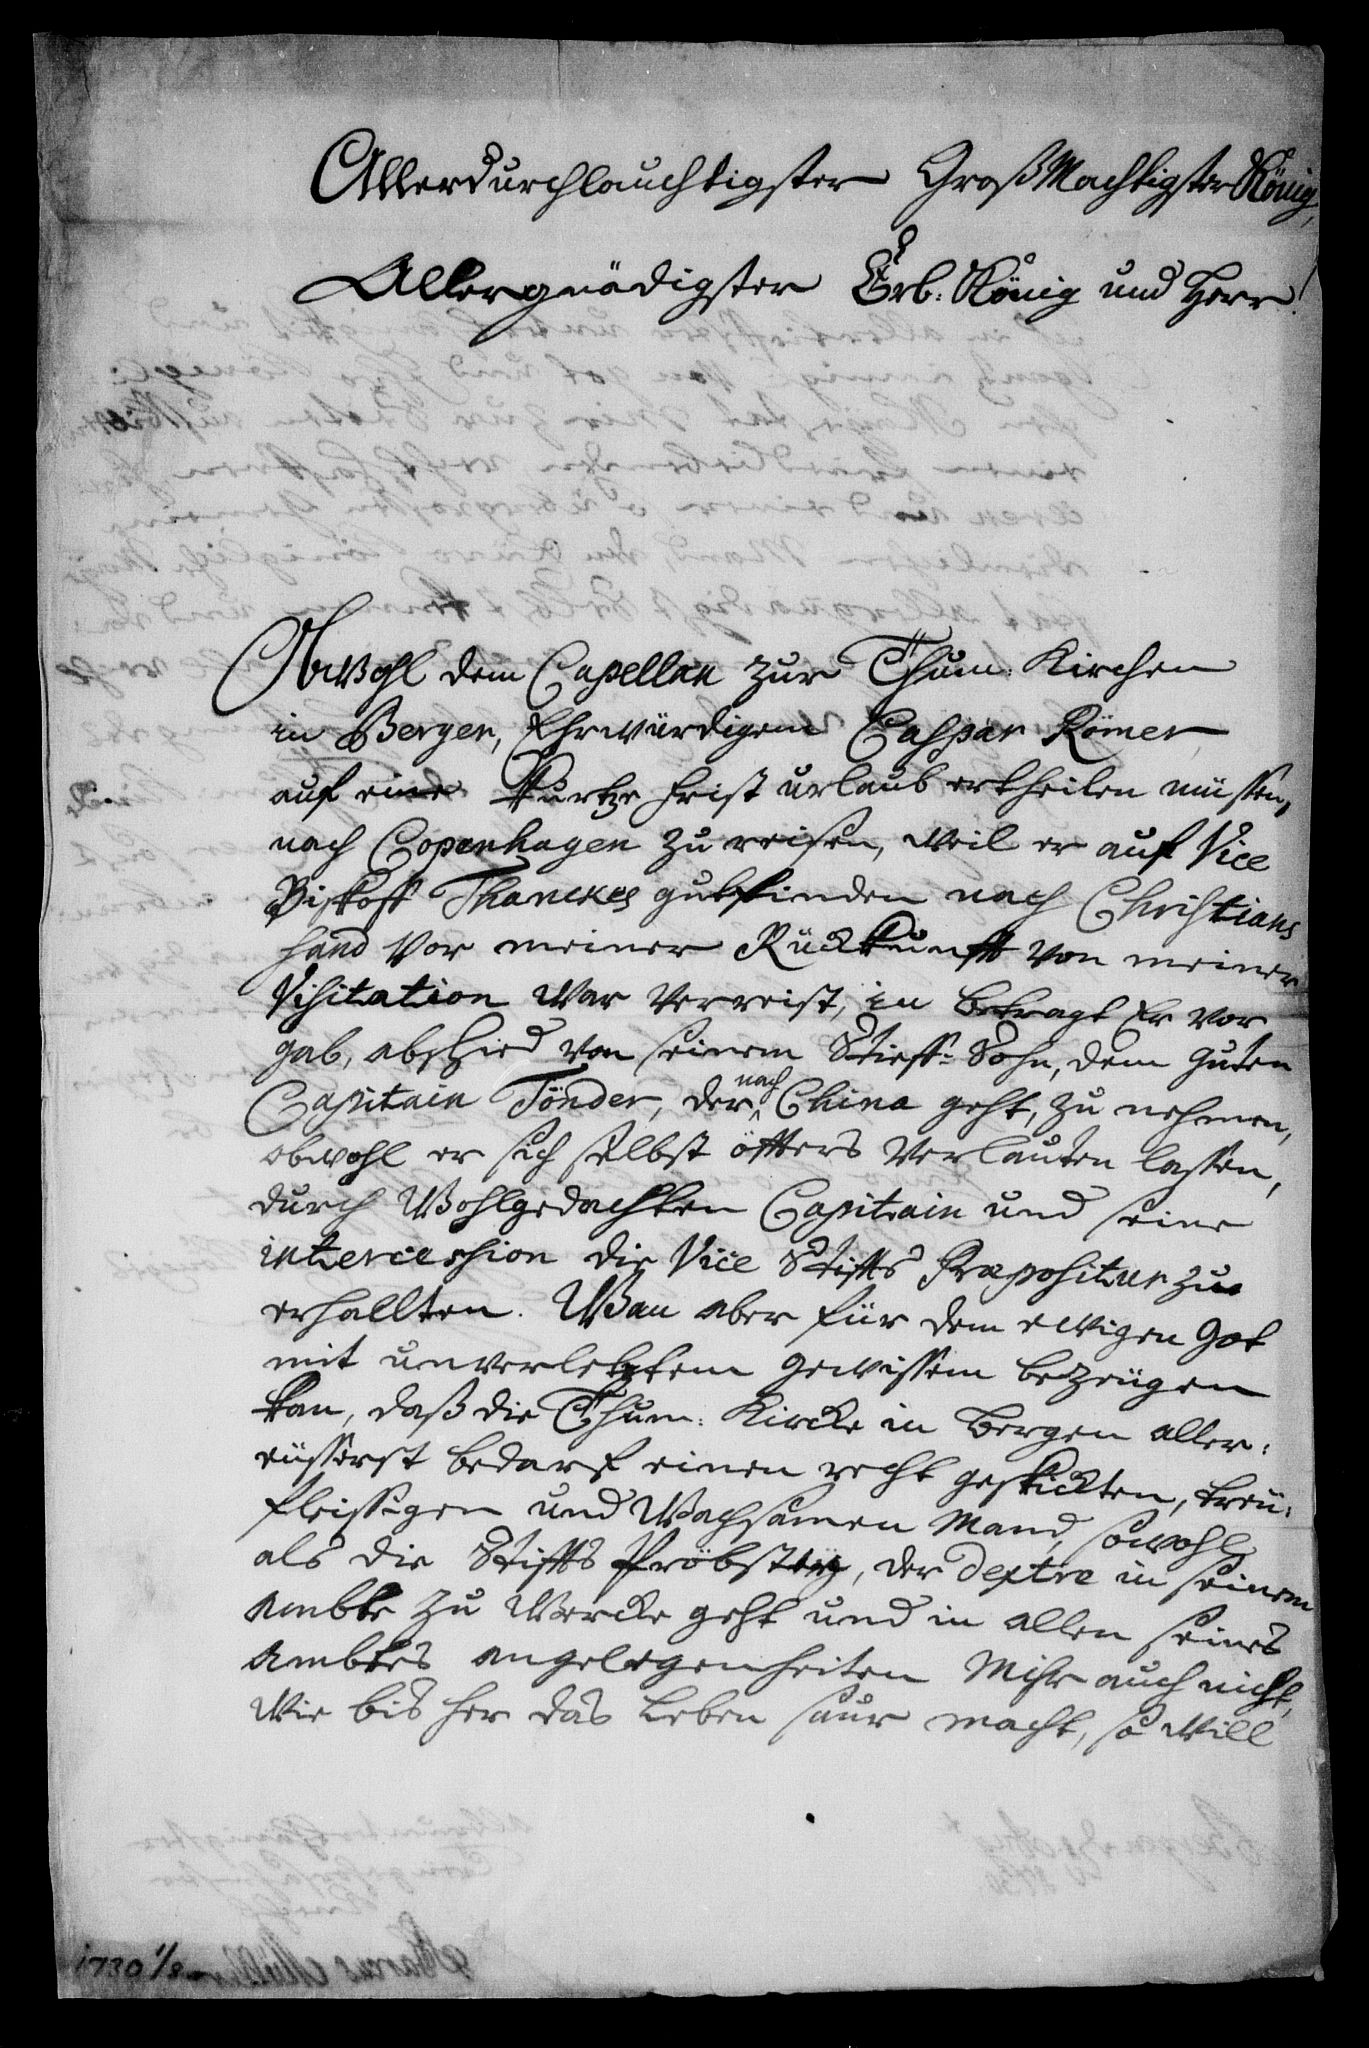 Allerdurchlauchtigster GroßMachtigster König,
Allergnädigster Erb: König und Herr!
Obwohl dem Capellan zur Thum: Kirchen
in Bergen, Ehrwürdigem Caspar Römer
auf eine kurtze frist urlaub ertheilen müssen,
nach Copenhagen zu reisen, weil er auf Vice
Biskoff guthfinden nach Christians
sand vor meiner Rückkunfft von meiner
Visitation war verreist, in betragt Er vor
gab, abschied von seinem Stieff-Sohn, dem guten
Capitain Tönder, der nach China geht, zu nehmen,
obwohl er sich selbst öffters verlauten lassen,
durch Wohlgedachten Capitain und seine
intercession die Vice Stiffts Præpositur zu
erhallten. Wan aber für dem ewigen Got
mit unverletztem gewissem bezeügen
kan, daß die Thum: Kircke in Bergen aller-
eüsserst bedarf einen recht geskickten, treü-
fleissigen und wachsamen Mand, sowohl
als die Stiffts Pröbstey, der dextre in seinem
Ambte zu Wercke geht und in allen seines
Ambtes angelegenheiten Mihr auch nicht,
wie bis her das Leben saur macht, so will
1730 1/8